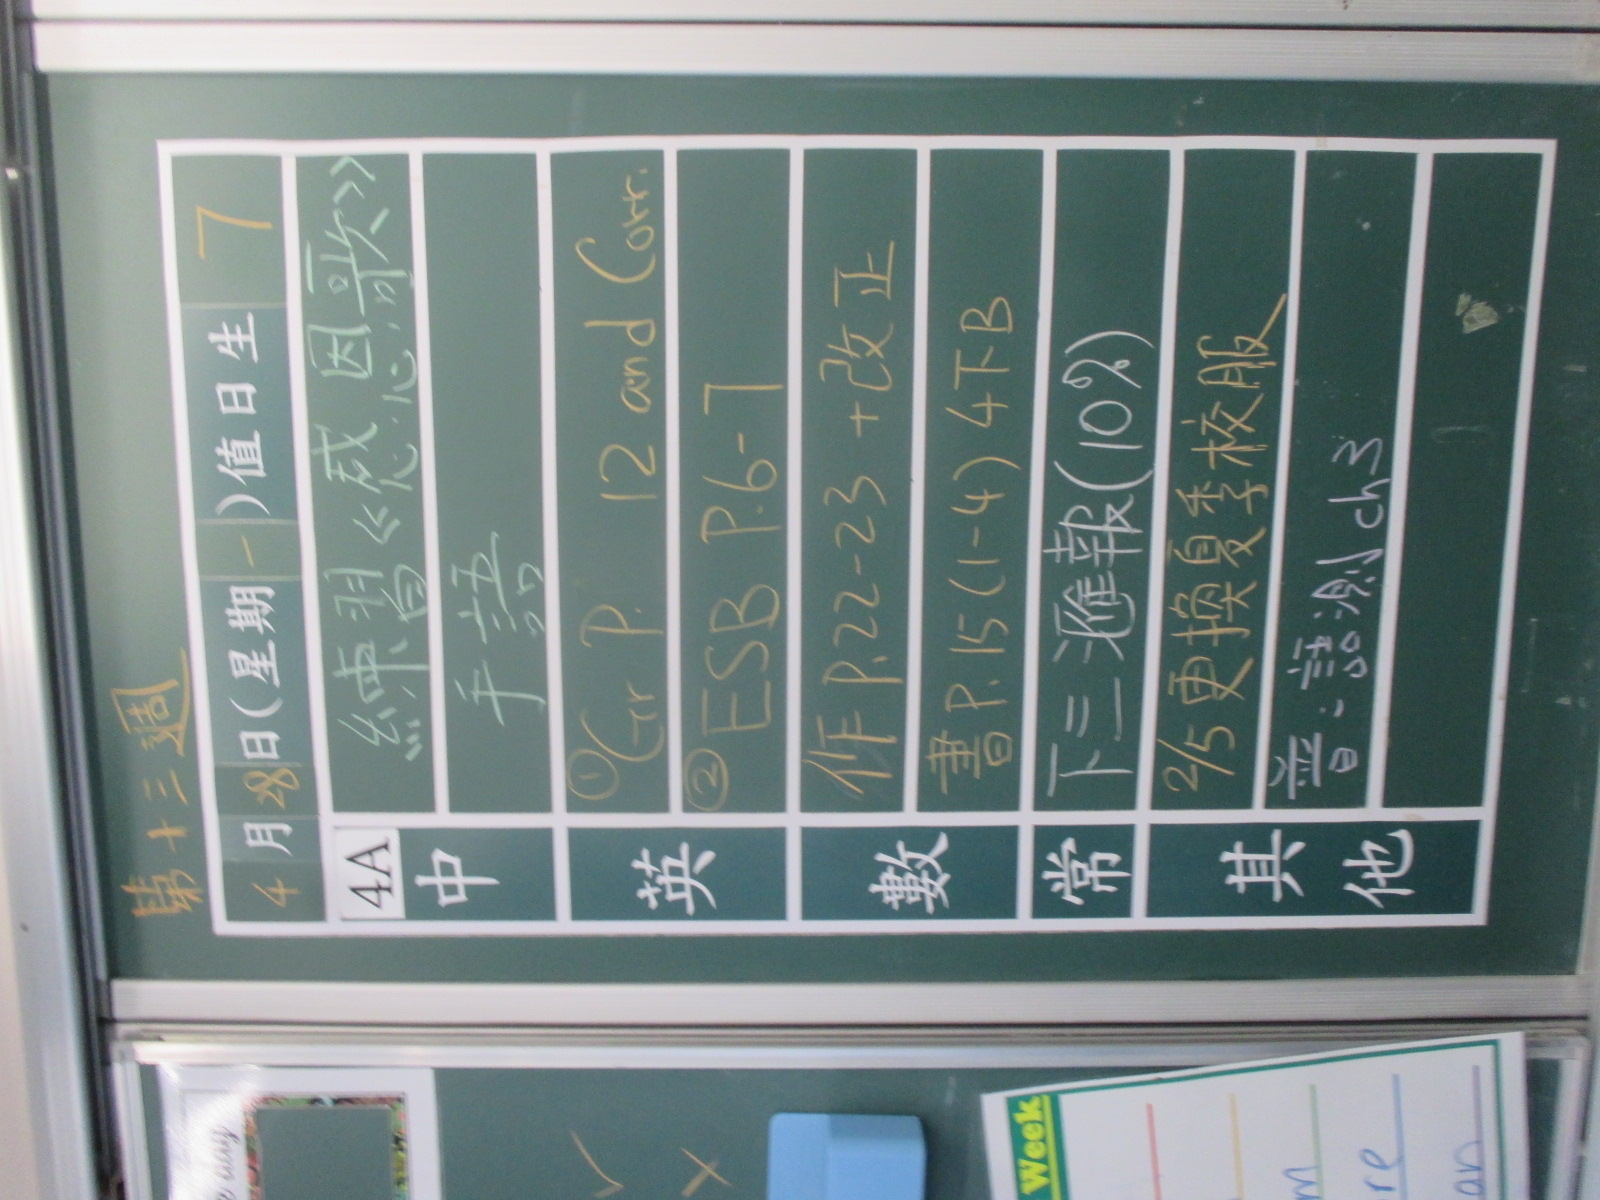 第十三週
4月28日(星期一)值日生 7
4A
中
練習《感恩歌》
手語
英
①Gr P. 12 and Corr.
②ESB P.6-7
數
作P.22-23+改正
書P.15(1-4)4下B
常
下三匯報(10%)
其他
2/5更換夏季校服
普:話測ch3
Week
m
re
an